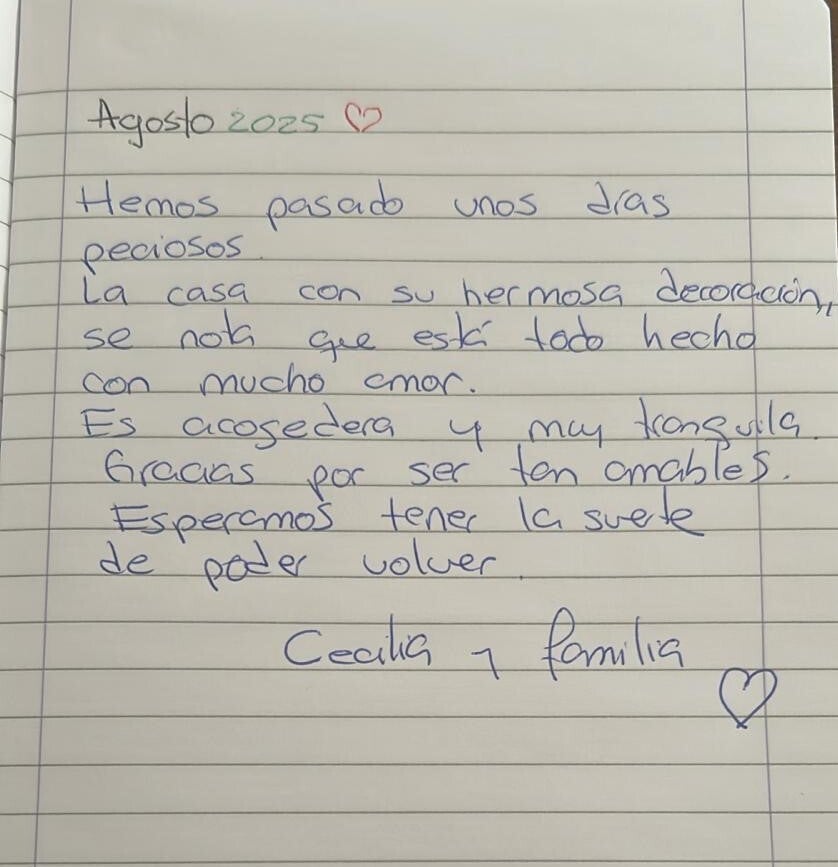 Agosto 2025 ♡
Hemos pasado unos días
peciosos.
La casa con su hermosa decoración,
se nota que está todo hecho
con mucho amor.
Es acogedera y muy tranquila.
Gracias por ser tan amables.
Esperamos tener la suerte
de poder volver.
Cecilia y familia
♡